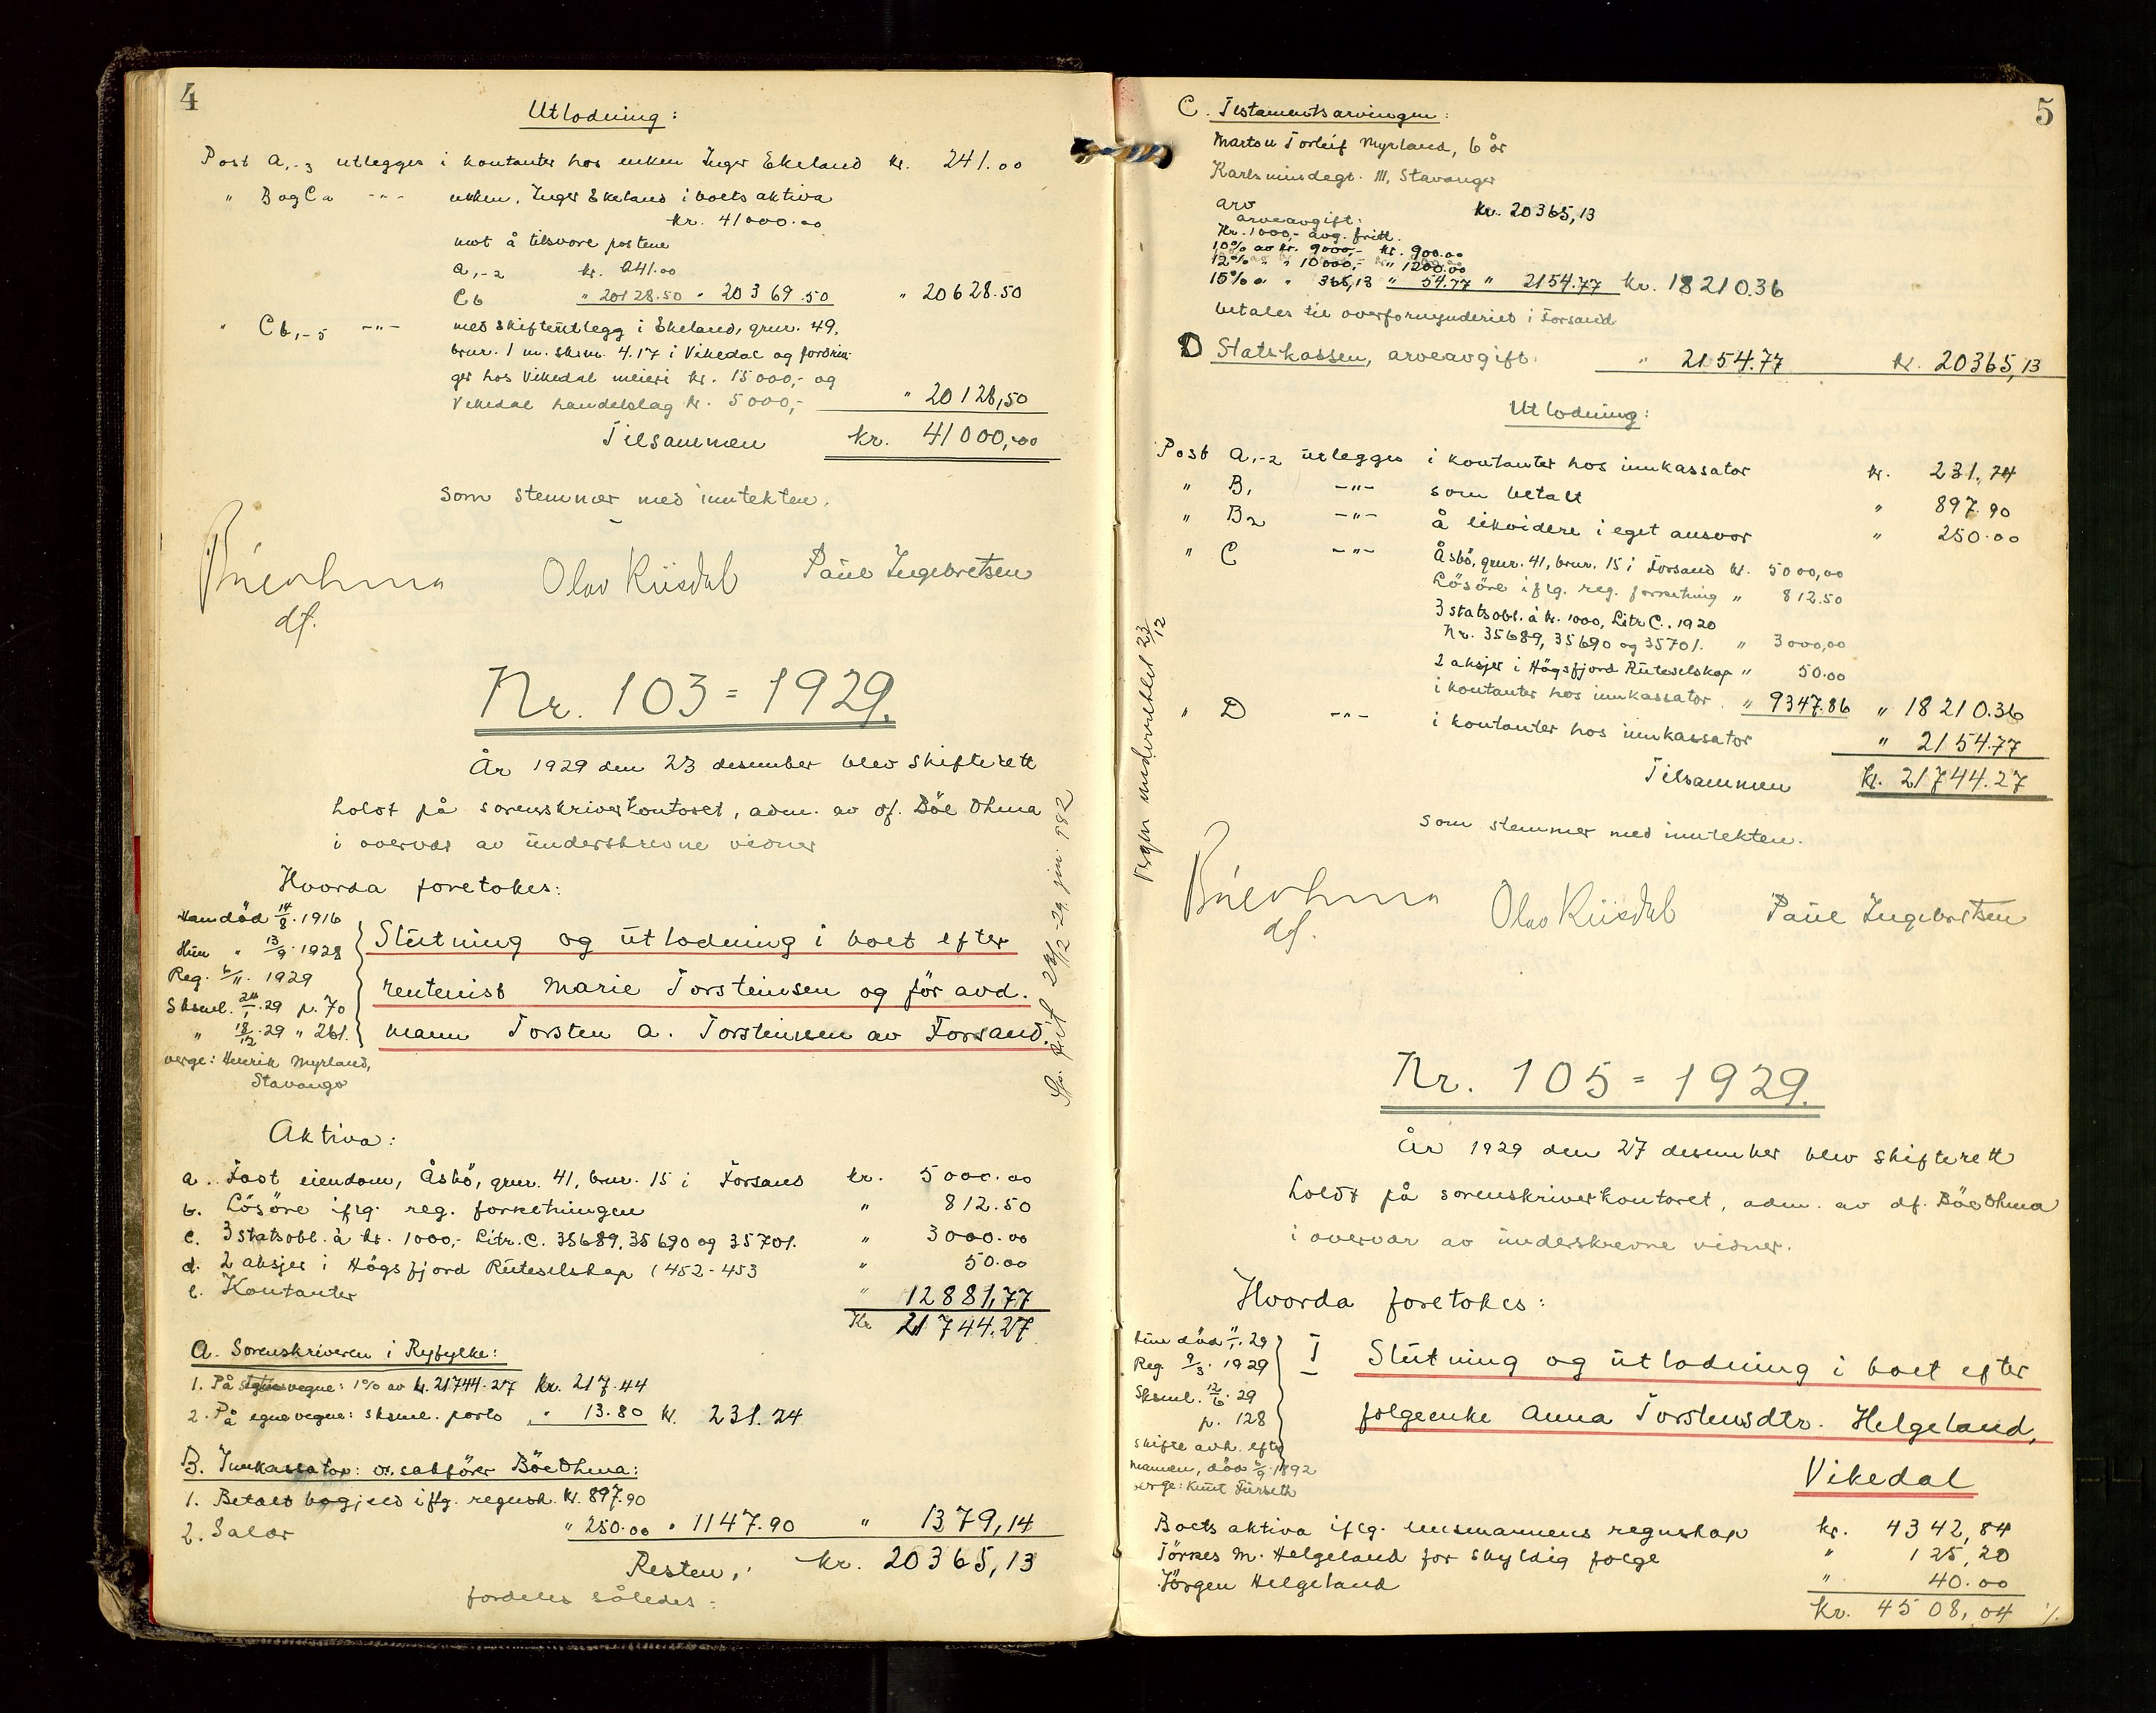 4
Utlodning:
Post A,-3 utlegges i kontanter hos enken Inger Ekeland kr. 241.00
" B og Ca -"- enken, Inger Ekeland i boets aktiva
kr. 41000.00
mot å tilsvare postene
A,-2 kr. 241.00
Cb " 20128.50 " 20369.50 " 20628.50
" Cb,-5 -"- med skifteutlegg i Ekeland, gnr. 49,
brnr. 1 m. skm. 4.17 i Vikedal og fordrin-
ger hos Vikedal meieri kr. 15000,- og
Vikedal handelslag kr. 5000,- " 20128,50
Tilsammen kr. 41000,00
som stemmer med inntekten.
Böe Ohma Olav Riisdal Paul Ingebretsen
df.
Nr. 103 = 1929.
År 1929 den 23 desember blev skifterett
holdt på sorenskriverkontoret, adm. av df. Böe Ohma
i overvær av underskrevne vidner
Hvorda foretokes:
Han död 14/8. 1916
Hun " 13/9. 1928
Reg. 6/11. 1929
Sksml. 24/1. 29 p. 70
" 18/12. 29 " 261.
verge: Henrik Myrland,
Stavanger
Slutning og utlodning i boet efter
rentenist Marie Torsteinsen og för avd.
mann Torsten A. Torsteinsen av Forsand.
Aktiva:
a. Fast eiendom, Åsbö, gnr. 41, brnr. 15 i Forsand kr. 5000.00
b. Lösöre iflg. reg. forretningen " 812.50
c. 3 statsobl. à kr. 1000,- Litr. C. 35689, 35690 og 35701. " 3000.00
d. 2 aksjer i Högsfjord Ruteselskap (452-453 " 50.00
e. Kontanter " 12881,77
Kr 21744.27
A. Sorenskriveren i Ryfylke:
1. På statens vegne: 1% av kr. 21744.27 kr. 217.44
2. På egne vegne: sksml. porto " 13.80 kr. 231.24
B. Innkassator: o.r.sakförer Böe Ohma:
1. Betalt bogjeld iflg. regnsk. kr. 897.90
2. Salær " 250.00 " 1147.90 " 1379,14
Resten, kr. 20365,13
fordeles således:
5
C. Testamentsarvingen:
Marton Torleif Myrland, 6 år
Karlsminnegt. 111, Stavanger
arv kr. 20365,13
arveavgift:
Kr. 1000,- avg. fritt.
10% av kr. 9000,- kr. 900.00
12% " " 10000,- " 1200.00
15% " " 365,13 " 54.77 " 2154.77 kr. 18210.36
betales til overformynderiet i Forsand
D Statskassen, arveavgift. " 2154.77 kr. 20365,13
Utlodning:
Post A,-2 utlegges i kontanter hos innkassator kr. 231,24
" B, -"- som betalt " 897.90
" B2 -"- å likvidere i eget ansvar " 250.00
" C -"- Åsbö, gnr. 41, brnr. 15 i Forsand kr. 5000,00
Lösöre iflg. reg. forretning " 812.50
3 statsobl. à kr. 1000, Litr C. 1920
Nr. 35689, 35690 og 35701. " 3000,00
2 aksjer i Högsfjord Ruteselskap " 50.00
i kontanter hos innkassator. " 9347.86 " 18210.36
" D -"- i kontanter hos innkassator " 2154.77
Tilsammen kr. 21744.27
som stemmer med inntekten.
Böe Ohma Olav Riisdal Paul Ingebretsen
df.
Nr. 105 = 1929.
År 1929 den 27 desember blev skifterett
holdt på sorenskriverkontoret, adm. av df. Böe Ohma
i overvær av underskrevne vidner.
Hvorda foretokes:
Hun död 11/1. 29
Reg. 9/3. 1929
Sksml. 12/6. 29
p. 128
skifte avh. efter
mannen, död 5/9. 1892
verge: Knut Furseth
I Slutning og utlodning i boet efter
folgeenke Anna Torstensdtr. Helgeland,
Vikedal
Boets aktiva iflg. lensmannens regnskap kr. 4342,84
Törres M. Helgeland for skyldig folge " 125,20
Jörgen Helgeland " 40.00
kr. 4508,04 ./.